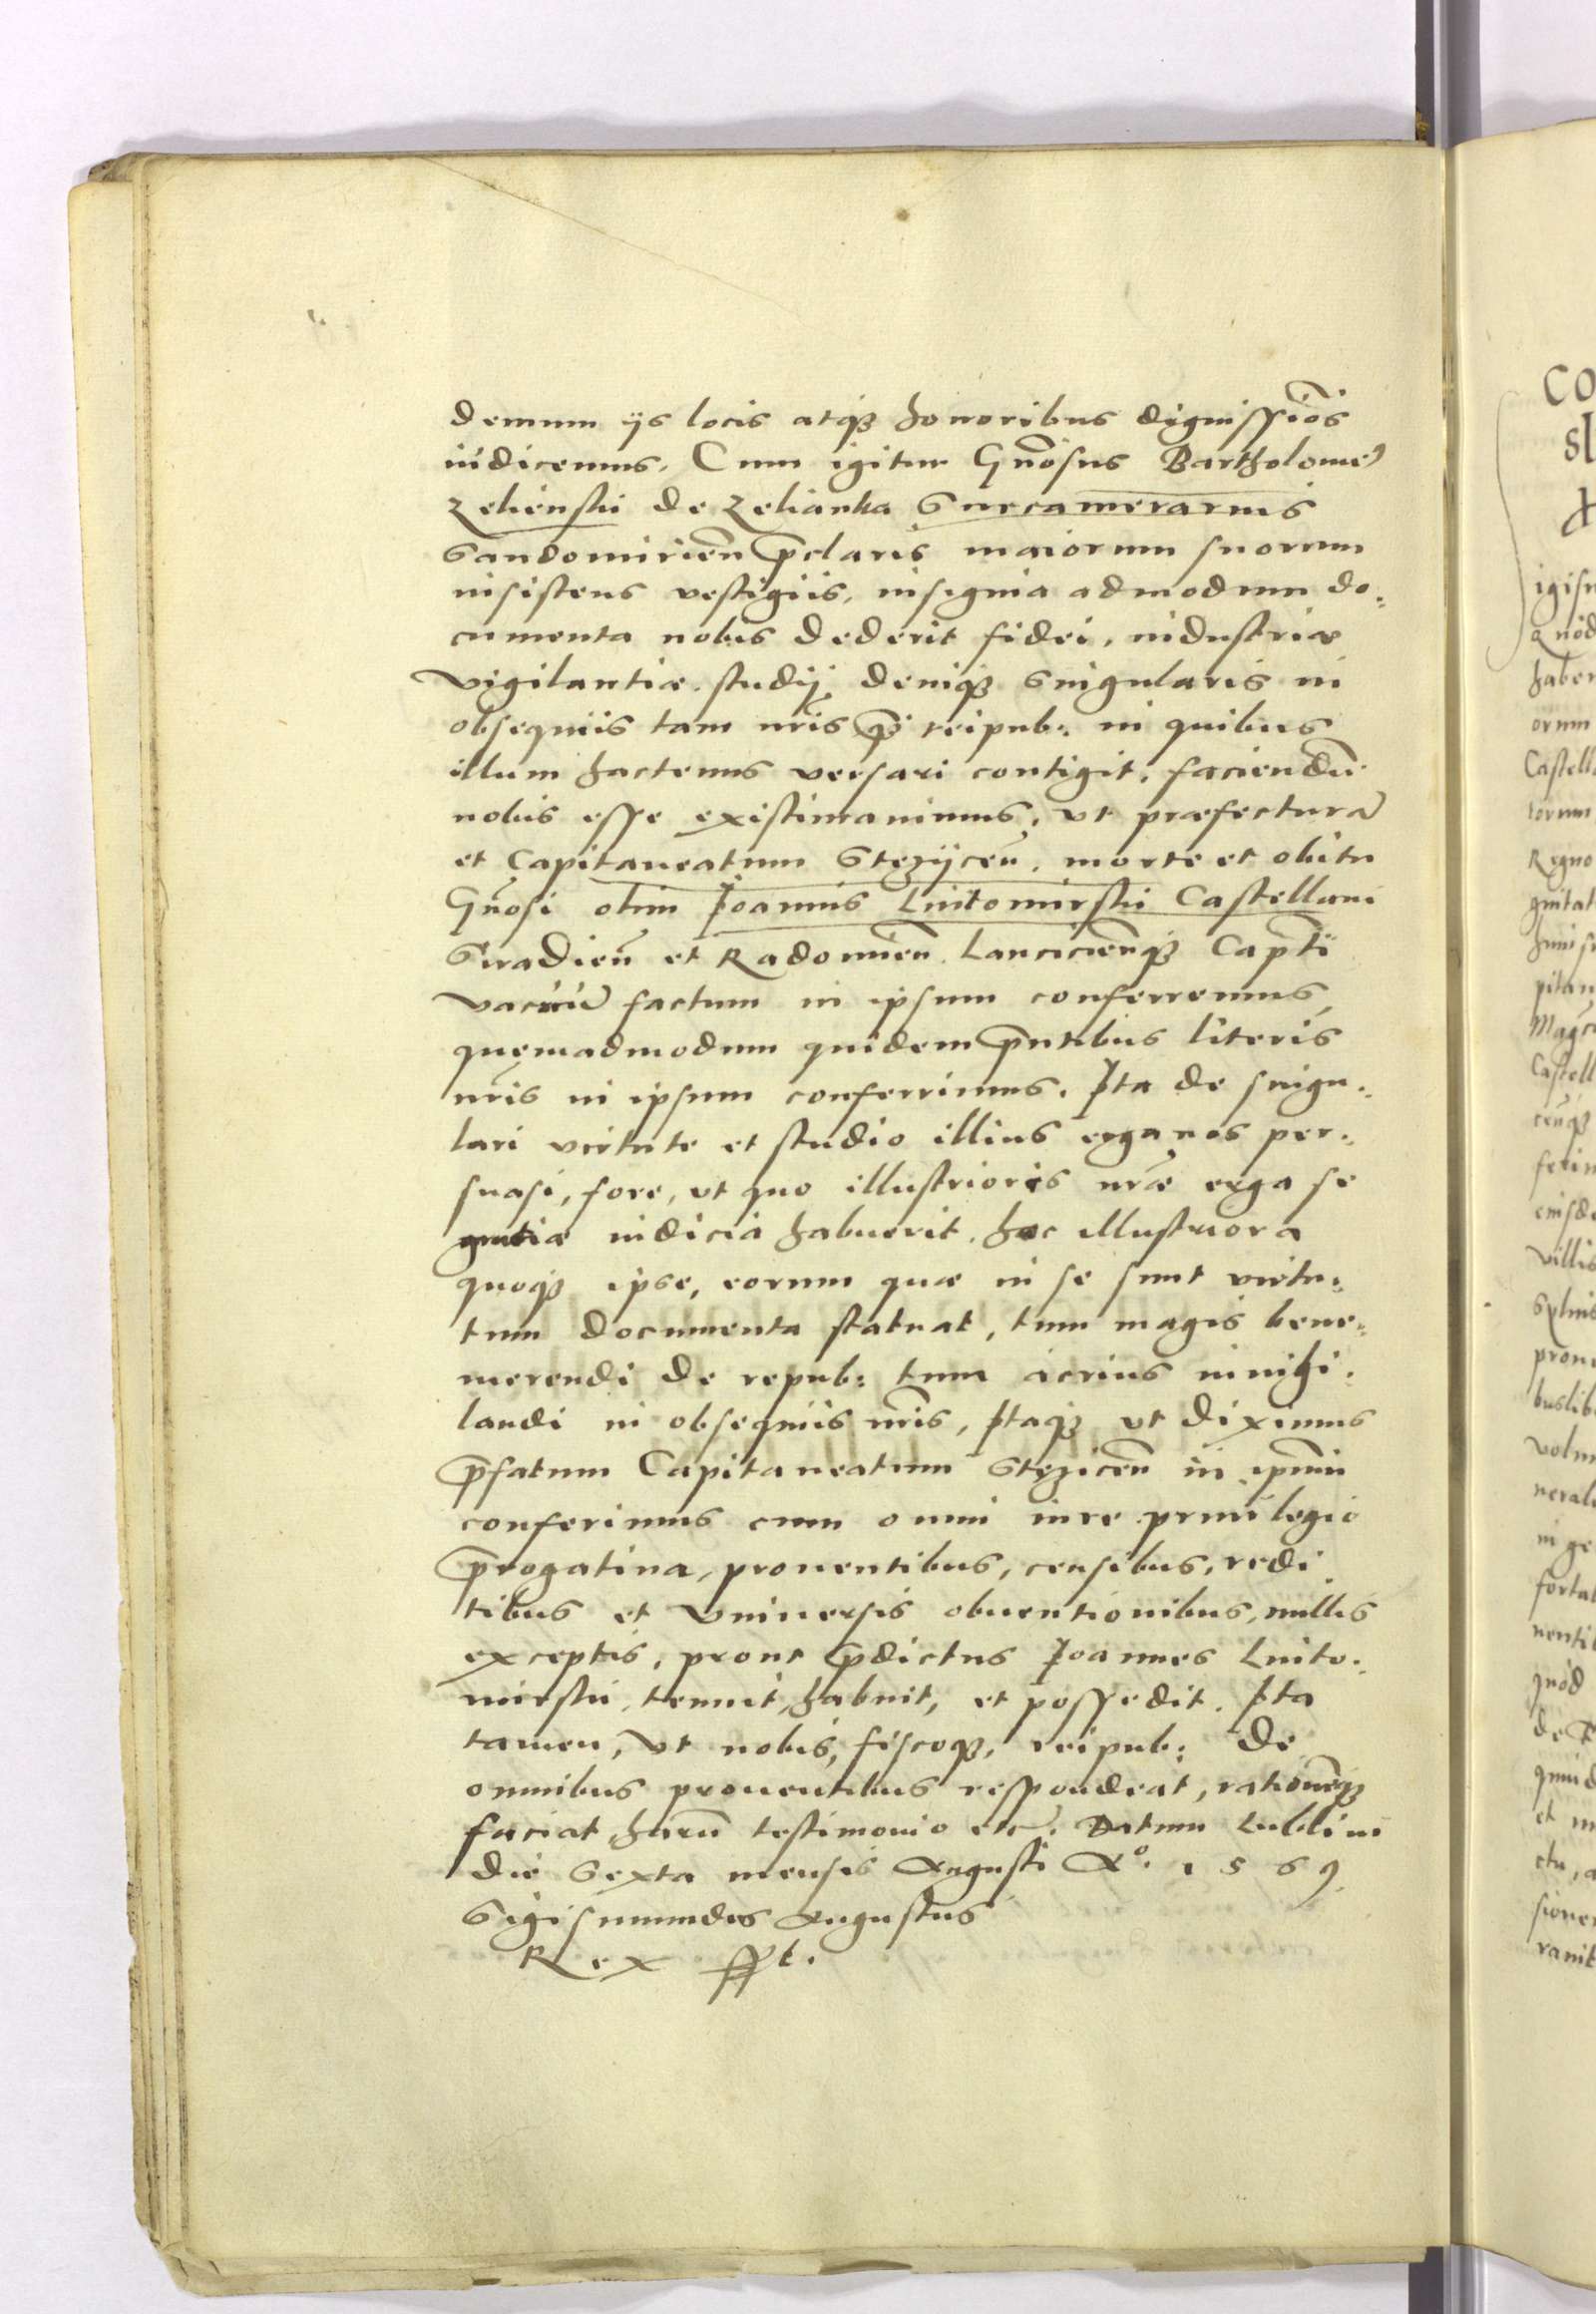 demum ijs locis atq₃ honoribus dignissiōs
iudicemus. Cum igitur Gn̄osus Bartholome9
Zelienski de Zelianka Succamerarius
Sandomirien̄ p̄claris maiorum suorum
insistens vestigiis, insignia admodum do:
cumenta nobis dederit fidei, industriæ
vigilantiæ, studij deniq₃ singularis in
obsequiis tam nr̄is q̄₃ reipub: in quibus
illum hactenus versari contigit, faciendū
nobis esse existimauimus, ut præfecturā
et Capitaneatum Stezijcen̄. morte et obitu
Gn̄osi olim Joannis Lutomirskii Castellani
Siradien̄ et Radomien̄ Lancicien̄q₃ Cap̄ti
vacuū factum in ipsum conferremus,
quemadmodum quidem p̄ntibus literis
nr̄is in ipsum conferrimus. Ita de singu:
lari virtute et studio illius erga nos per:
suasi, fore, ut quo illustrioris nr̄æ erga se
gratiæ indicia habuerit, hoc illustriora
quoq₃ ipse, eorum quæ in se sunt virtu:
tum documenta statuat, tum magis bene:
merendi de repub: tum acrius inuigi:
landi in obsequiis nr̄is, Itaq₃ ut diximus
p̄fatum Capitaneatum Stęzicen̄ in ipsum
conferimus cum omni iure priuilegio
p̄rogatiua, prouentibus, censibus, redi
tibus et vniuersis obuentionibus, nullis
exceptis, prout p̄dictus Joannes Luto:
mirskii, tenuit, habuit, et possedit. Ita
tamen, ut nobis, fiscoq₃, reipub: de
omnibus prouentibus respondeat, rationēq₃
faciat, harū testimonio etc. Datum Lublini
die Sexta mensis Augusti Aº. 1569.
Sigismundus Augustus
Rex sst.